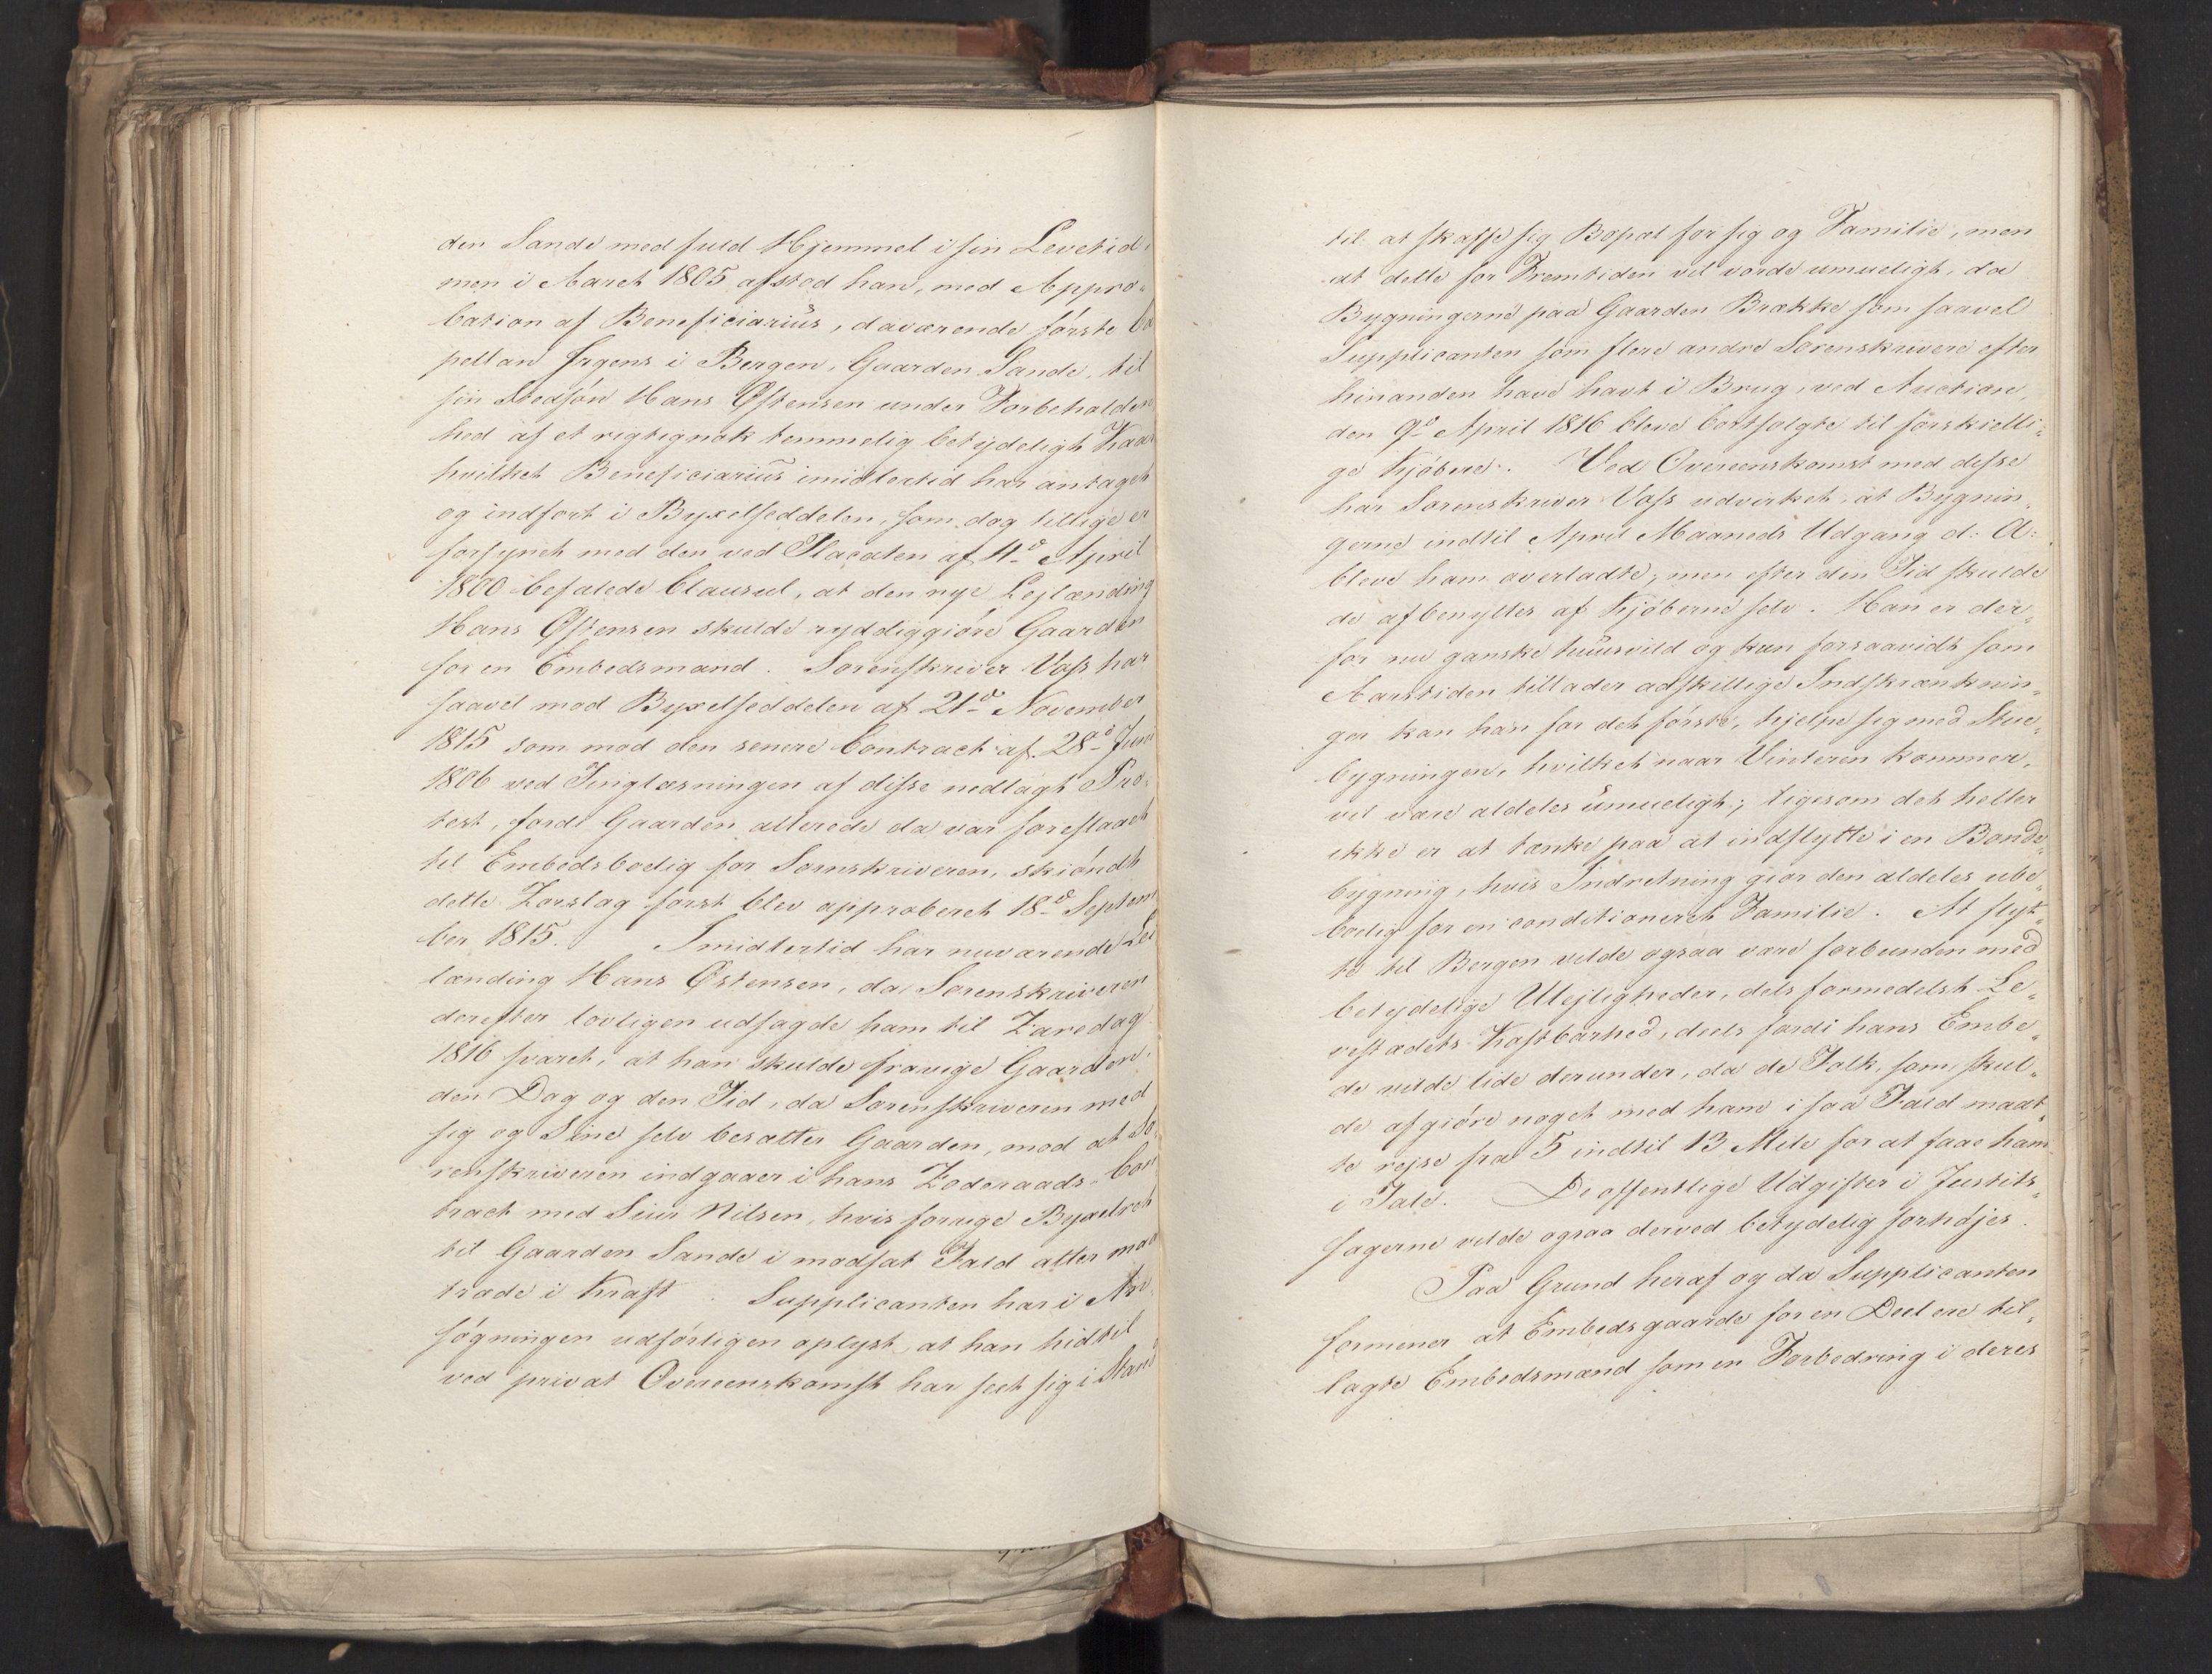 den Sande med fuld Hjemmel i sin Levetid,
men i Aaret 1805 afstod han, med Appro-
bation af Beneficiarius, daværende første Ca
pellan Irgens i Bergen, Gaarden Sande, til
sin Stedsøn Hans Østensen under Forbeholden
hed af et rigtignok temmelig betydeligt Kaar
hvilket Beneficiarius imidlertid har antaget
og indført i Byxelseddelen, som dog tillige er
forsynet med den ved Placaten af 4de April
1800 befalede Clausul, at den nye Lejlænding
Hans Østensen skulde ryddiggiøre Gaarden
for en Embedsmand. Sorenskriver Vass har
saavel mod Byxelseddelen af 21de November
1815 som mod den senere Contract af 28de Juni
1806 ved Tinglæsningen af disse nedlagt Pro-
test, fordi Gaarden allerede da var foreslaaet
til Embedsbolig for Sornskriveren, skiøndt
dette Forslag først blev approberet 18de Septem
ber 1815. Imidlertid har nuværende Lei
lænding Hans Østensen, da Sorenskriveren
derefter lovligen udsagde ham til Faredag
1816 svaret, at han skulde fravige Gaarden,
den Dag og den Tid, da Sorenskriveren med
sig og Sine selv besætter Gaarden, mod at So-
renskriveren indgaaer i hans Foderaads-Con
tract med Siur Nilsen, hvis forrige Byxelret
til Gaarden Sande i modsat Fald atter maa
træde i Kraft. Supplicanten har i An-
søgningen udførligen oplyst, at han hidtil
ved privat Overeenskomst har seet sig i Stand
til at skaffe sig Bopæl for sig og Familie, men
at dette for Fremtiden vil vorde umueligt, da
Bygningerne paa Gaarden Brække som saavel
Supplicanten som flere andre Sorenskrivere efter
hinanden have havt i Brug, ved Auction,
den 9de April 1816 bleve bortsolgte til forskielli-
ge Kjøbere. Ved Overeenskomst med disse
har Sorenskriver Vass udvirket, at Bygnin-
gerne indtil April Maaneds Udgang d: A:
bleve ham overladte, men efter den Tid skulde
de afbenyttes af Kjøberne selv. Han er der-
for nu ganske huusvild og kun forsaavidt som
Aarstiden tillader adskillige Indskrænknin-
ger kan han for det første, hjelpe sig med Stue-
bygningen, hvilket naar Vinteren kommer,
vil være aldeles umueligt; ligesom det heller
ikke er at tænke paa at indflytte i en Bonde-
bygning, hvis Indretning giør den aldeles ube-
boelig for en conditioneret Familie. At flyt-
te til Bergen vilde ogsaa være forbunden med
betydelige Ulejligheder, dels formedelst Le-
vestædets Kostbarhed, deels fordi hans Embe-
de vilde lide derunder, da de Folk, som skul-
de afgiøre noget med ham i saa Fald maat-
te rejse fra 5 indtil 13 Mile for at faae ham
i Tale. De offentlige Udgifter i Justits-
sagerne vilde ogsaa derved betydelig forhøjes.
Paa Grund heraf og da Supplicanten
formener at Embedsgaarde for en Deel ere til-
lagte Embedsmænd som en Forbedring i deres